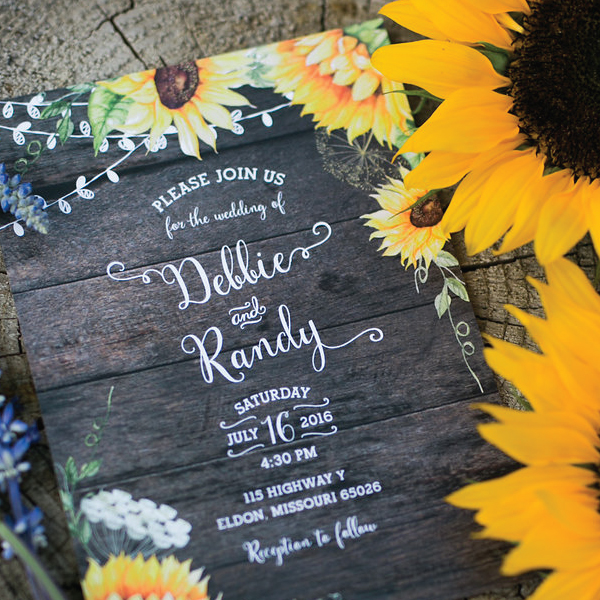 PLEASE JOIN US
for the wedding of
Debbie
and
Randy
SATURDAY
JULY 16 2016
4:30 PM
115 HIGHWAY Y
ELDON, MISSOURI 65026
Reception to follow